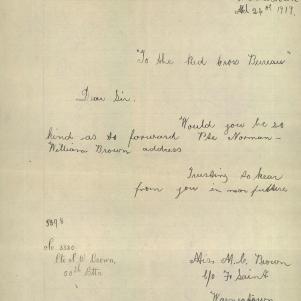 24th 1917.
"To the Red Cross Bureau"
Dear Sir.
Would you be so
kind as to forward Pte Norman-
William Brown address
Trusting to hear
from you in near future
No 3330
Pte N. W. Brown,
50th Bttn
Miss M. C. Brown
c/o